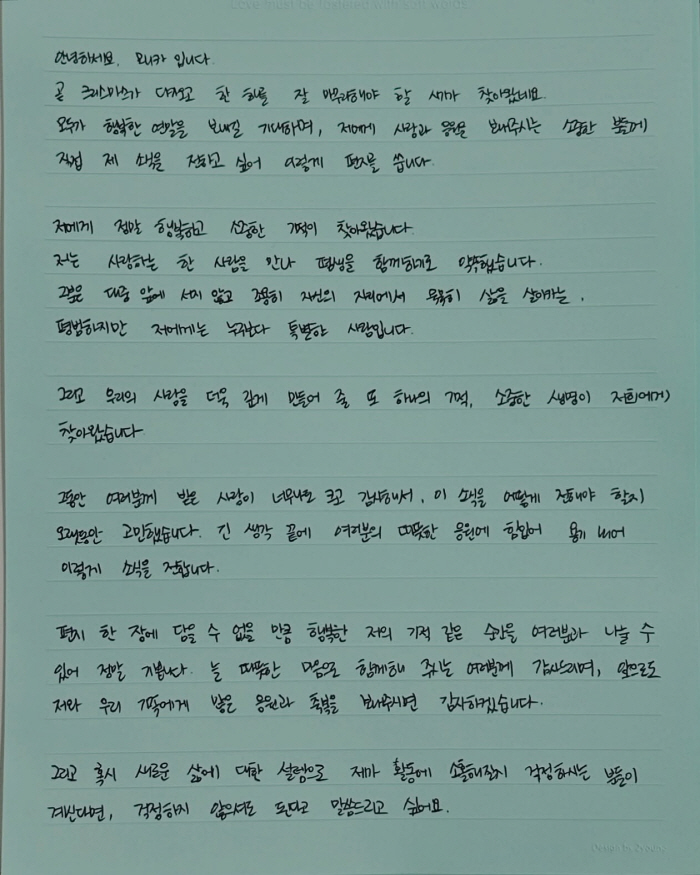 Love must be fostered with soft words.
안녕하세요, 모니카 입니다.
곧 크리스마스가 다가오고 한 해를 잘 마무리해야 할 시기가 찾아왔네요.
모두가 행복한 연말을 보내길 기대하며, 저에게 사랑과 응원을 보내주시는 소중한 분들께
직접 제 소식을 전하고 싶어 이렇게 편지를 씁니다.
저에게 정말 행복하고 소중한 기적이 찾아왔습니다.
저는 사랑하는 한 사람을 만나 평생을 함께하기로 약속했습니다.
그분은 대중 앞에 서지 않고 조용히 자신의 자리에서 묵묵히 삶을 살아가는,
평범하지만 저에게는 누구보다 특별한 사람입니다.
그리고 우리의 사랑을 더욱 깊게 만들어 줄 또 하나의 기적, 소중한 생명이 저희에게
찾아왔습니다.
그동안 여러분께 받은 사랑이 너무나도 크고 감사해서, 이 소식을 어떻게 전해야 할지
오랫동안 고민했습니다. 긴 생각 끝에 여러분의 따뜻한 응원에 힘입어 용기 내어
이렇게 소식을 전합니다.
편지 한 장에 담을 수 없을 만큼 행복한 저의 기적 같은 순간을 여러분과 나눌 수
있어 정말 기쁩니다. 늘 따뜻한 마음으로 함께해 주시는 여러분께 감사드리며, 앞으로도
저와 우리 가족에게 많은 응원과 축복을 보내주시면 감사하겠습니다.
그리고 혹시 새로운 삶에 대한 설렘으로 제가 활동에 소홀해질지 걱정하시는 분들이
계신다면, 걱정하지 않으셔도 된다고 말씀드리고 싶어요.